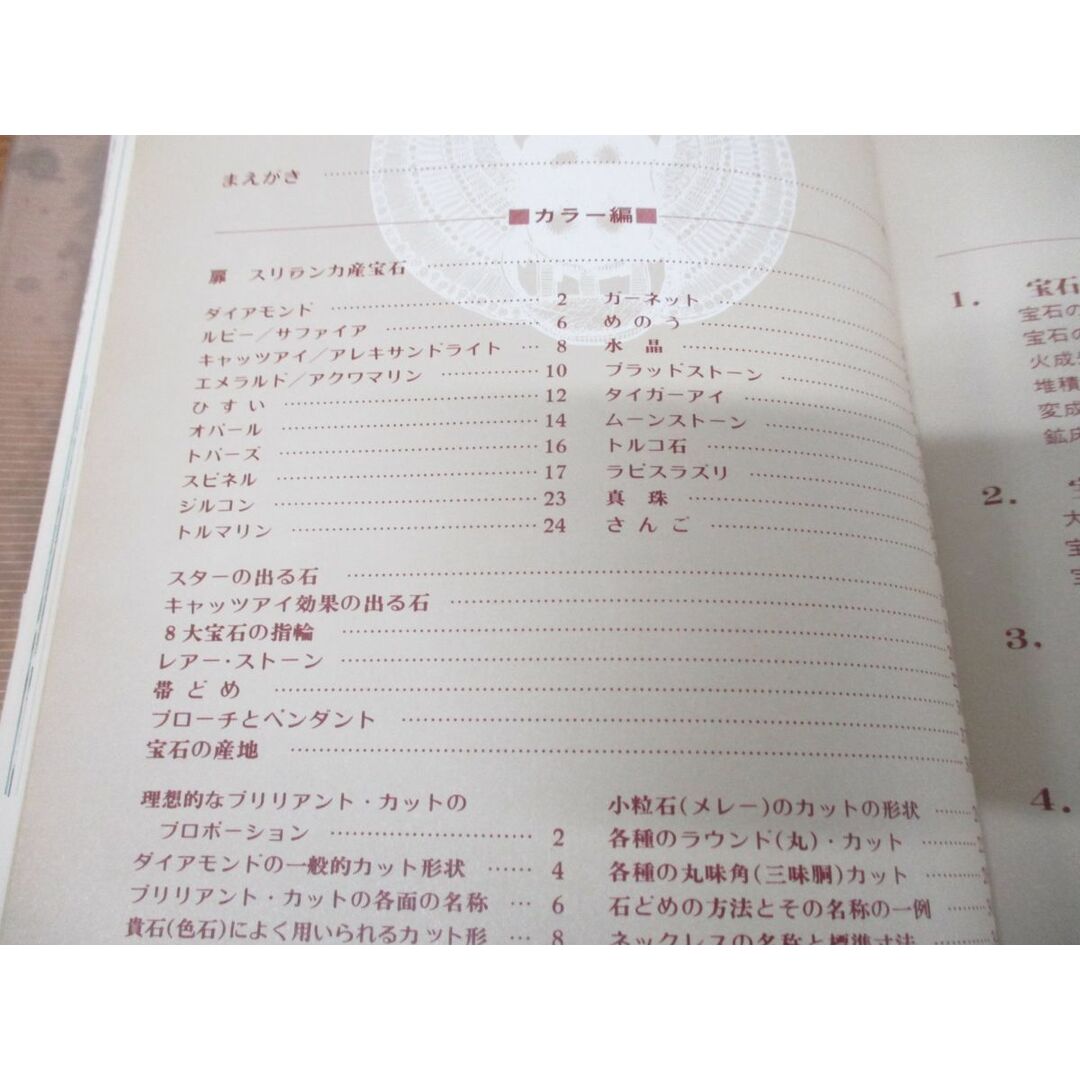 まえがき
■カラー編■
扉 スリランカ産宝石
ダイアモンド 2
ルビー/サファイア 6
キャッツアイ/アレキサンドライト 8
エメラルド/アクワマリン 10
ひすい 12
オパール 14
トパーズ 16
スピネル 17
ジルコン 23
トルマリン 24
ガーネット
めのう
水晶
ブラッドストーン
タイガーアイ
ムーンストーン
トルコ石
ラピスラズリ
真珠
さんご
スターの出る石
キャッツアイ効果の出る石
8大宝石の指輪
レアー・ストーン
帯どめ
ブローチとペンダント
宝石の産地
理想的なブリリアント・カットの
プロポーション 2
ダイアモンドの一般的カット形状 4
ブリリアント・カットの各面の名称 6
貴石(色石)によく用いられるカット形 8
小粒石(メレー)のカットの形状
各種のラウンド(丸)・カット
各種の丸味角(三味胴)カット
石どめの方法とその名称の一例
ネックレスの名称と標準寸法
1. 宝石
宝石の
宝石の
火成
堆積
変成
鉱床
2.
3.
4.